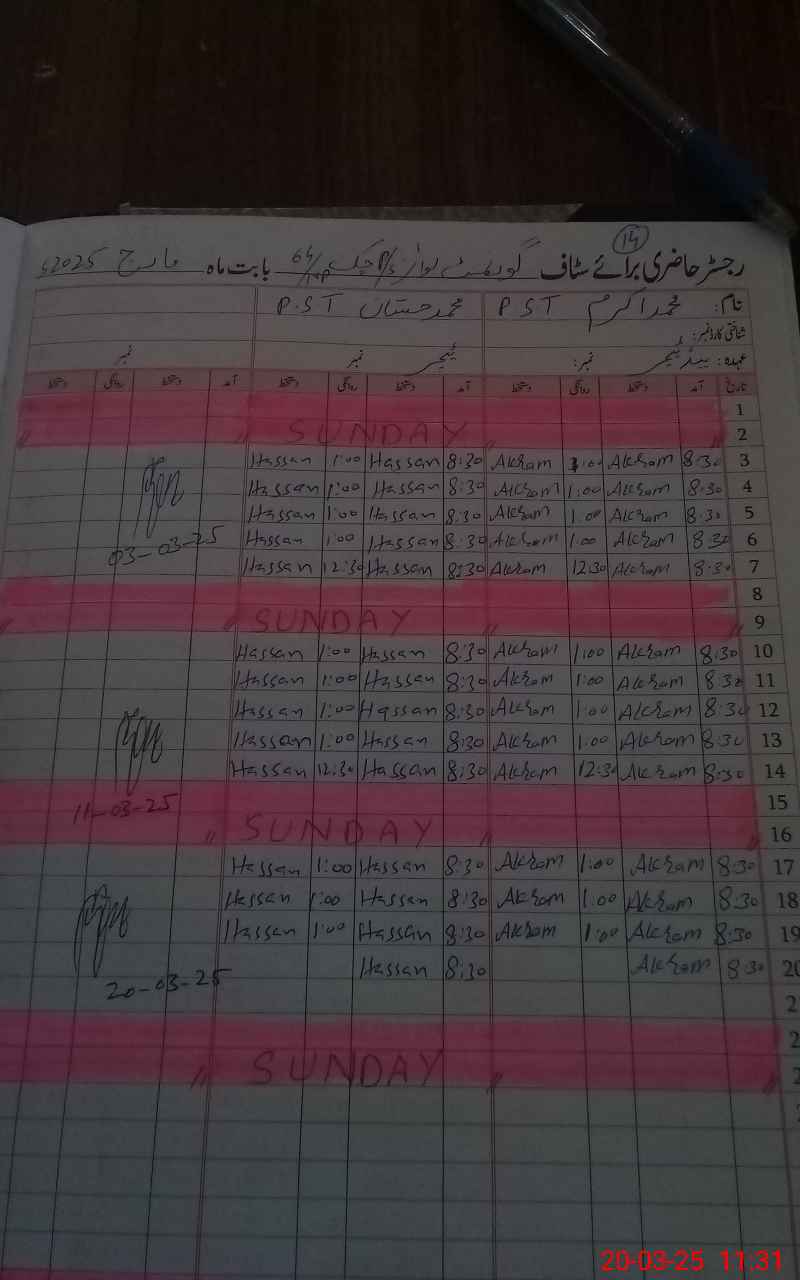 14
رجسٹر حاضری برائے سٹاف گورنمنٹ بوائز P/S چک 64/ بابت ماہ مارچ 2025ء
نام: محمد اکرم PST محمد حسان P.S.T
شناختی کارڈ نمبر:
عہدہ: ہیڈ ٹیچر نمبر: ٹیچر نمبر نمبر
تاریخ آمد دستخط روانگی دستخط آمد دستخط روانگی دستخط آمد دستخط روانگی دستخط
1
" SUNDAY " " 2
Hassan 1:00 Hassan 8:30 Akram 1:00 Akram 8:30 3
Hassan 1:00 Hassan 8:30 Akram 1:00 Akram 8:30 4
Hassan 1:00 Hassan 8:30 Akram 1:00 Akram 8:30 5
Hassan 1:00 Hassan 8:30 Akram 1:00 Akram 8:30 6
03-03-25
Hassan 12:30 Hassan 8:30 Akram 12:30 Akram 8:30 7
8
" SUNDAY " " 9
Hassan 1:00 Hassan 8:30 Akram 1:00 Akram 8:30 10
Hassan 1:00 Hassan 8:30 Akram 1:00 Akram 8:30 11
Hassan 1:00 Hassan 8:30 Akram 1:00 Akram 8:30 12
Hassan 1:00 Hassan 8:30 Akram 1:00 Akram 8:30 13
Hassan 12:30 Hassan 8:30 Akram 12:30 Akram 8:30 14
11-03-25 15
" SUNDAY " 16
Hassan 1:00 Hassan 8:30 Akram 1:00 Akram 8:30 17
Hassan 1:00 Hassan 8:30 Akram 1:00 Akram 8:30 18
Hassan 1:00 Hassan 8:30 Akram 1:00 Akram 8:30 19
Hassan 8:30 Akram 8:30 20
20-03-25
2
2
" SUNDAY " " 2
20-03-25 11:31